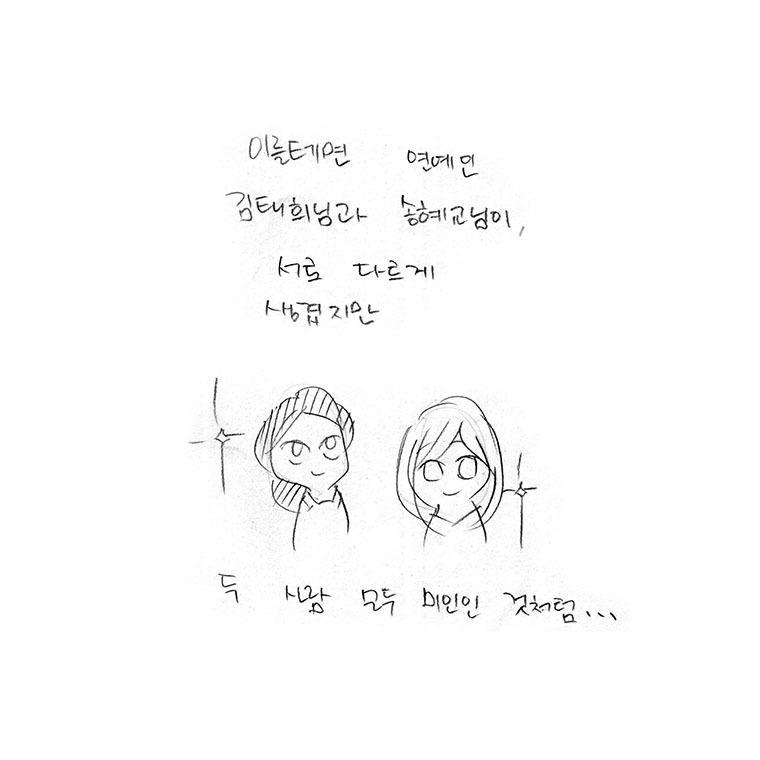 이를테면 연예인
김태희님과 송혜교님이,
서로 다르게
생겼지만
두 사람 모두 미인인 것처럼...